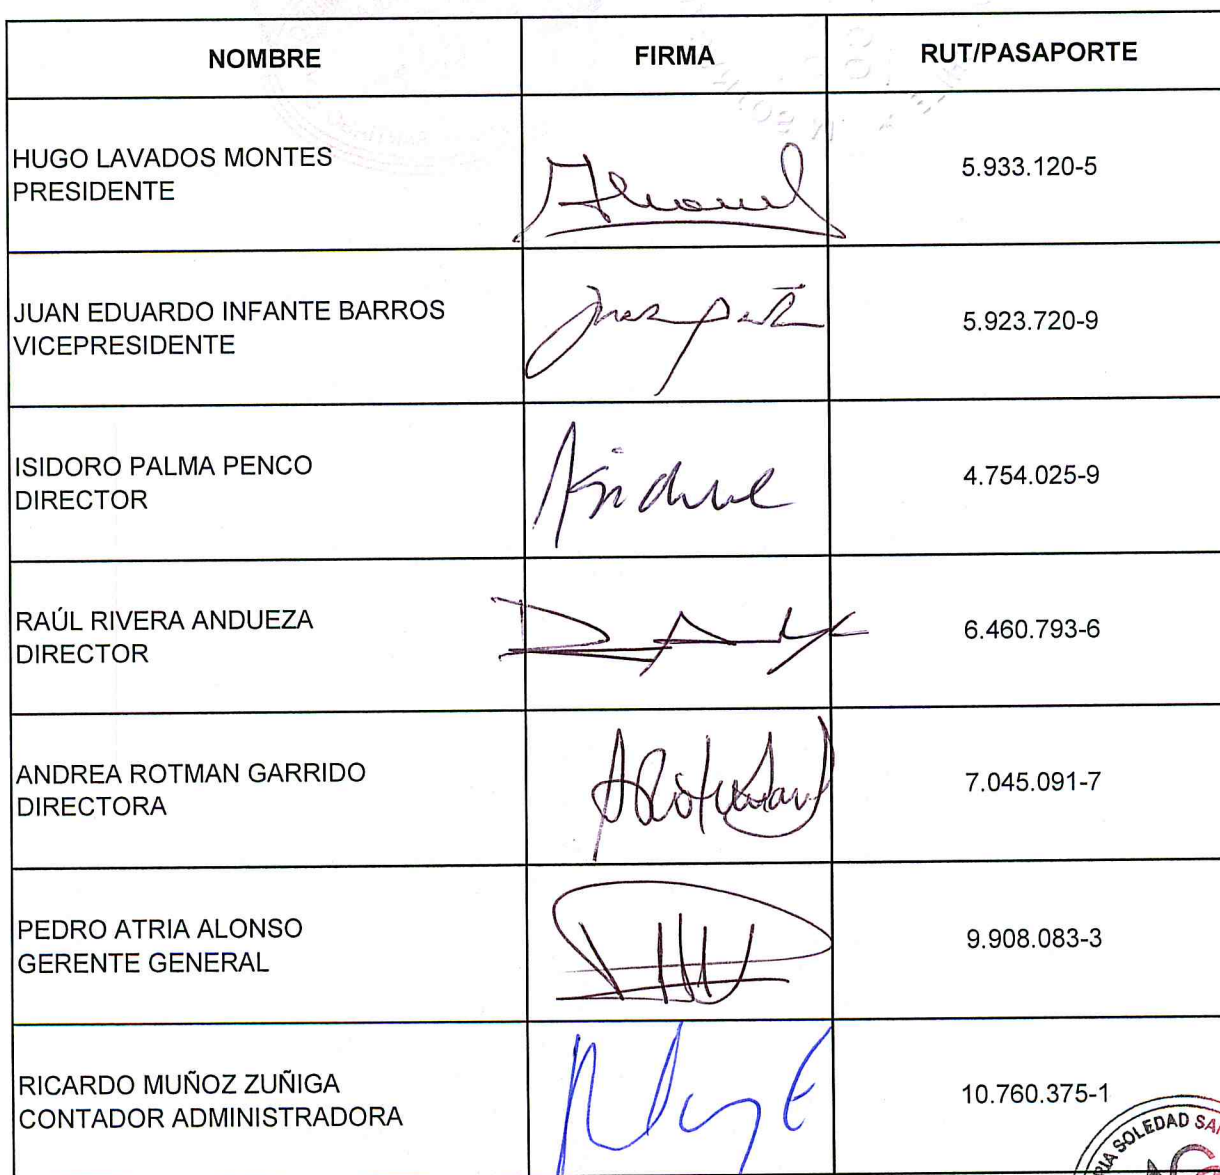 NOMBRE FIRMA RUT/PASAPORTE
HUGO LAVADOS MONTES
PRESIDENTE
5.933.120-5
JUAN EDUARDO INFANTE BARROS
VICEPRESIDENTE
5.923.720-9
ISIDORO PALMA PENCO
DIRECTOR
4.754.025-9
RAÚL RIVERA ANDUEZA
DIRECTOR
6.460.793-6
ANDREA ROTMAN GARRIDO
DIRECTORA
7.045.091-7
PEDRO ATRIA ALONSO
GERENTE GENERAL
9.908.083-3
RICARDO MUÑOZ ZUÑIGA
CONTADOR ADMINISTRADORA
10.760.375-1
SOLEDAD